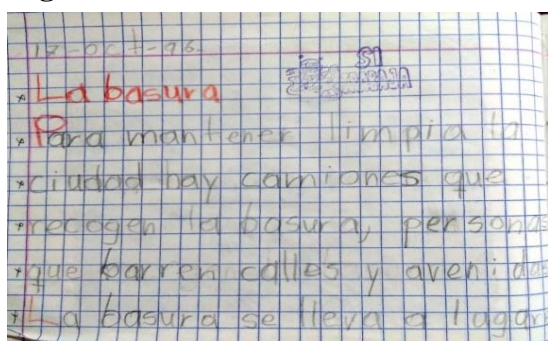 17-oct-96
SI
La basura
Para mantener limpia la
ciudad hay camiones que
recogen la basura, personas
que barren calles y avenidas
La basura se lleva a lagar